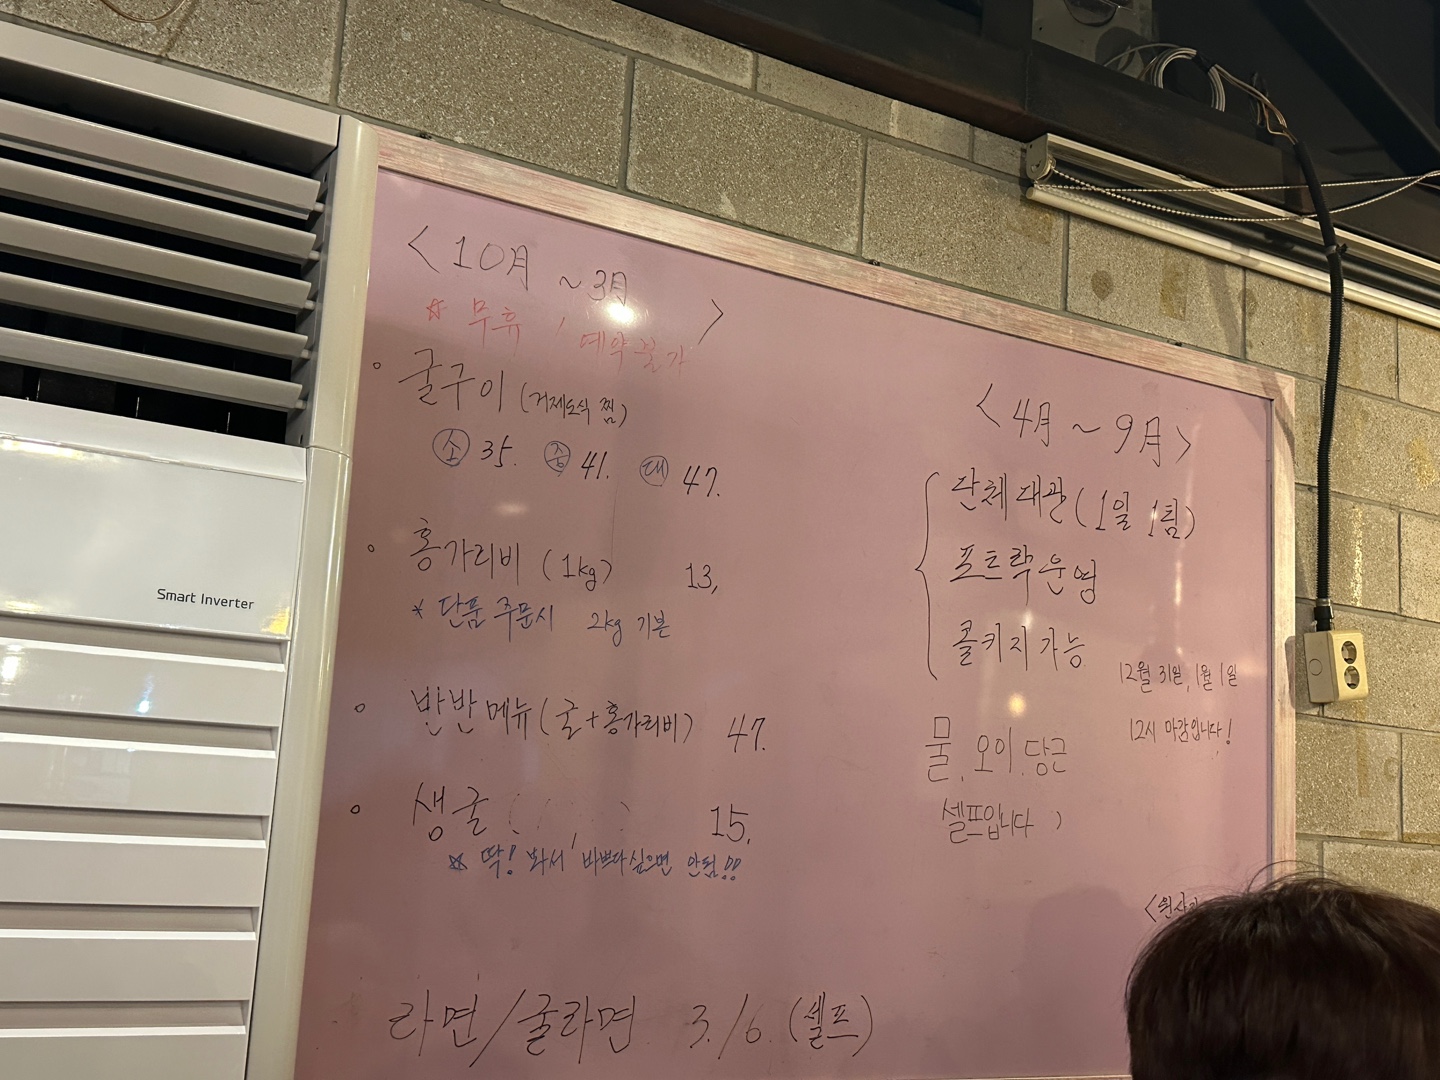 < 10月 ~ 3月 >
☆ 무휴, 예약불가
• 굴구이 (거제도식 찜)
소 35. 중 41. 대 47.
• 홍가리비 (1kg) 13,
* 단품 주문시 2kg 기본
• 반반메뉴 (굴+홍가리비) 47.
• 생굴 ( ) 15,
☆ 딱! 봐서 바쁘다싶으면 안됨!!
라면/굴라면 3./6. (셀프)
< 4月 ~ 9月 >
단체대관 (1일 1팀)
포트락 운영
콜키지 가능
12월 31일, 1월 1일
12시 마감입니다!
물, 오이, 당근
셀프입니다
Smart Inverter